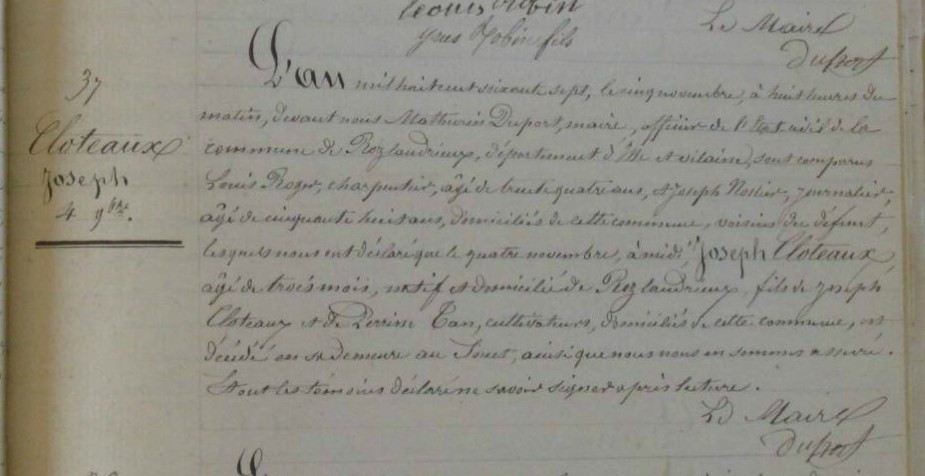 Louis Robin
Yves Robin fils
Le Maire
Duport
37
Cloteaux
Joseph
4 9bre.
L'an mil huit cent soixante sept, le cinq novembre, à huit heures du
matin, devant nous Mathurin Duport, maire, officier de l'état civil de la
commune de Roz landrieux, département d'Ille et vilaine, sont comparus
Louis Roger, charpentier, âgé de trente quatre ans, et Joseph Noslier, journalier,
âgé de cinquante huit ans, domiciliés de cette commune, voisins du défunt,
lesquels nous ont déclaré que le quatre novembre, à midi, Joseph Cloteaux
âgé de trois mois, natif et domicilié de Roz landrieux, fils de Joseph
Cloteaux et de Perrine Tan, cultivateurs, domiciliés de cette commune, est
décédé en sa demeure au, ainsi que nous nous en sommes assuré.
Et ont les témoins déclaré ne savoir signer après lecture.
Le Maire
Duport